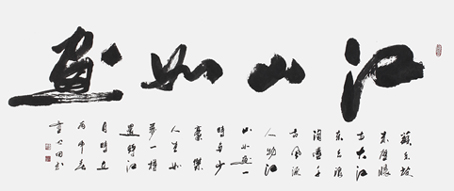 江山如畫
蘇東坡
赤壁懷
古大江
東去浪
淘盡千
古風流
人物江
山如畫一
時多少
豪傑
人生如
夢一樽
還酹江
月時在
丙申春